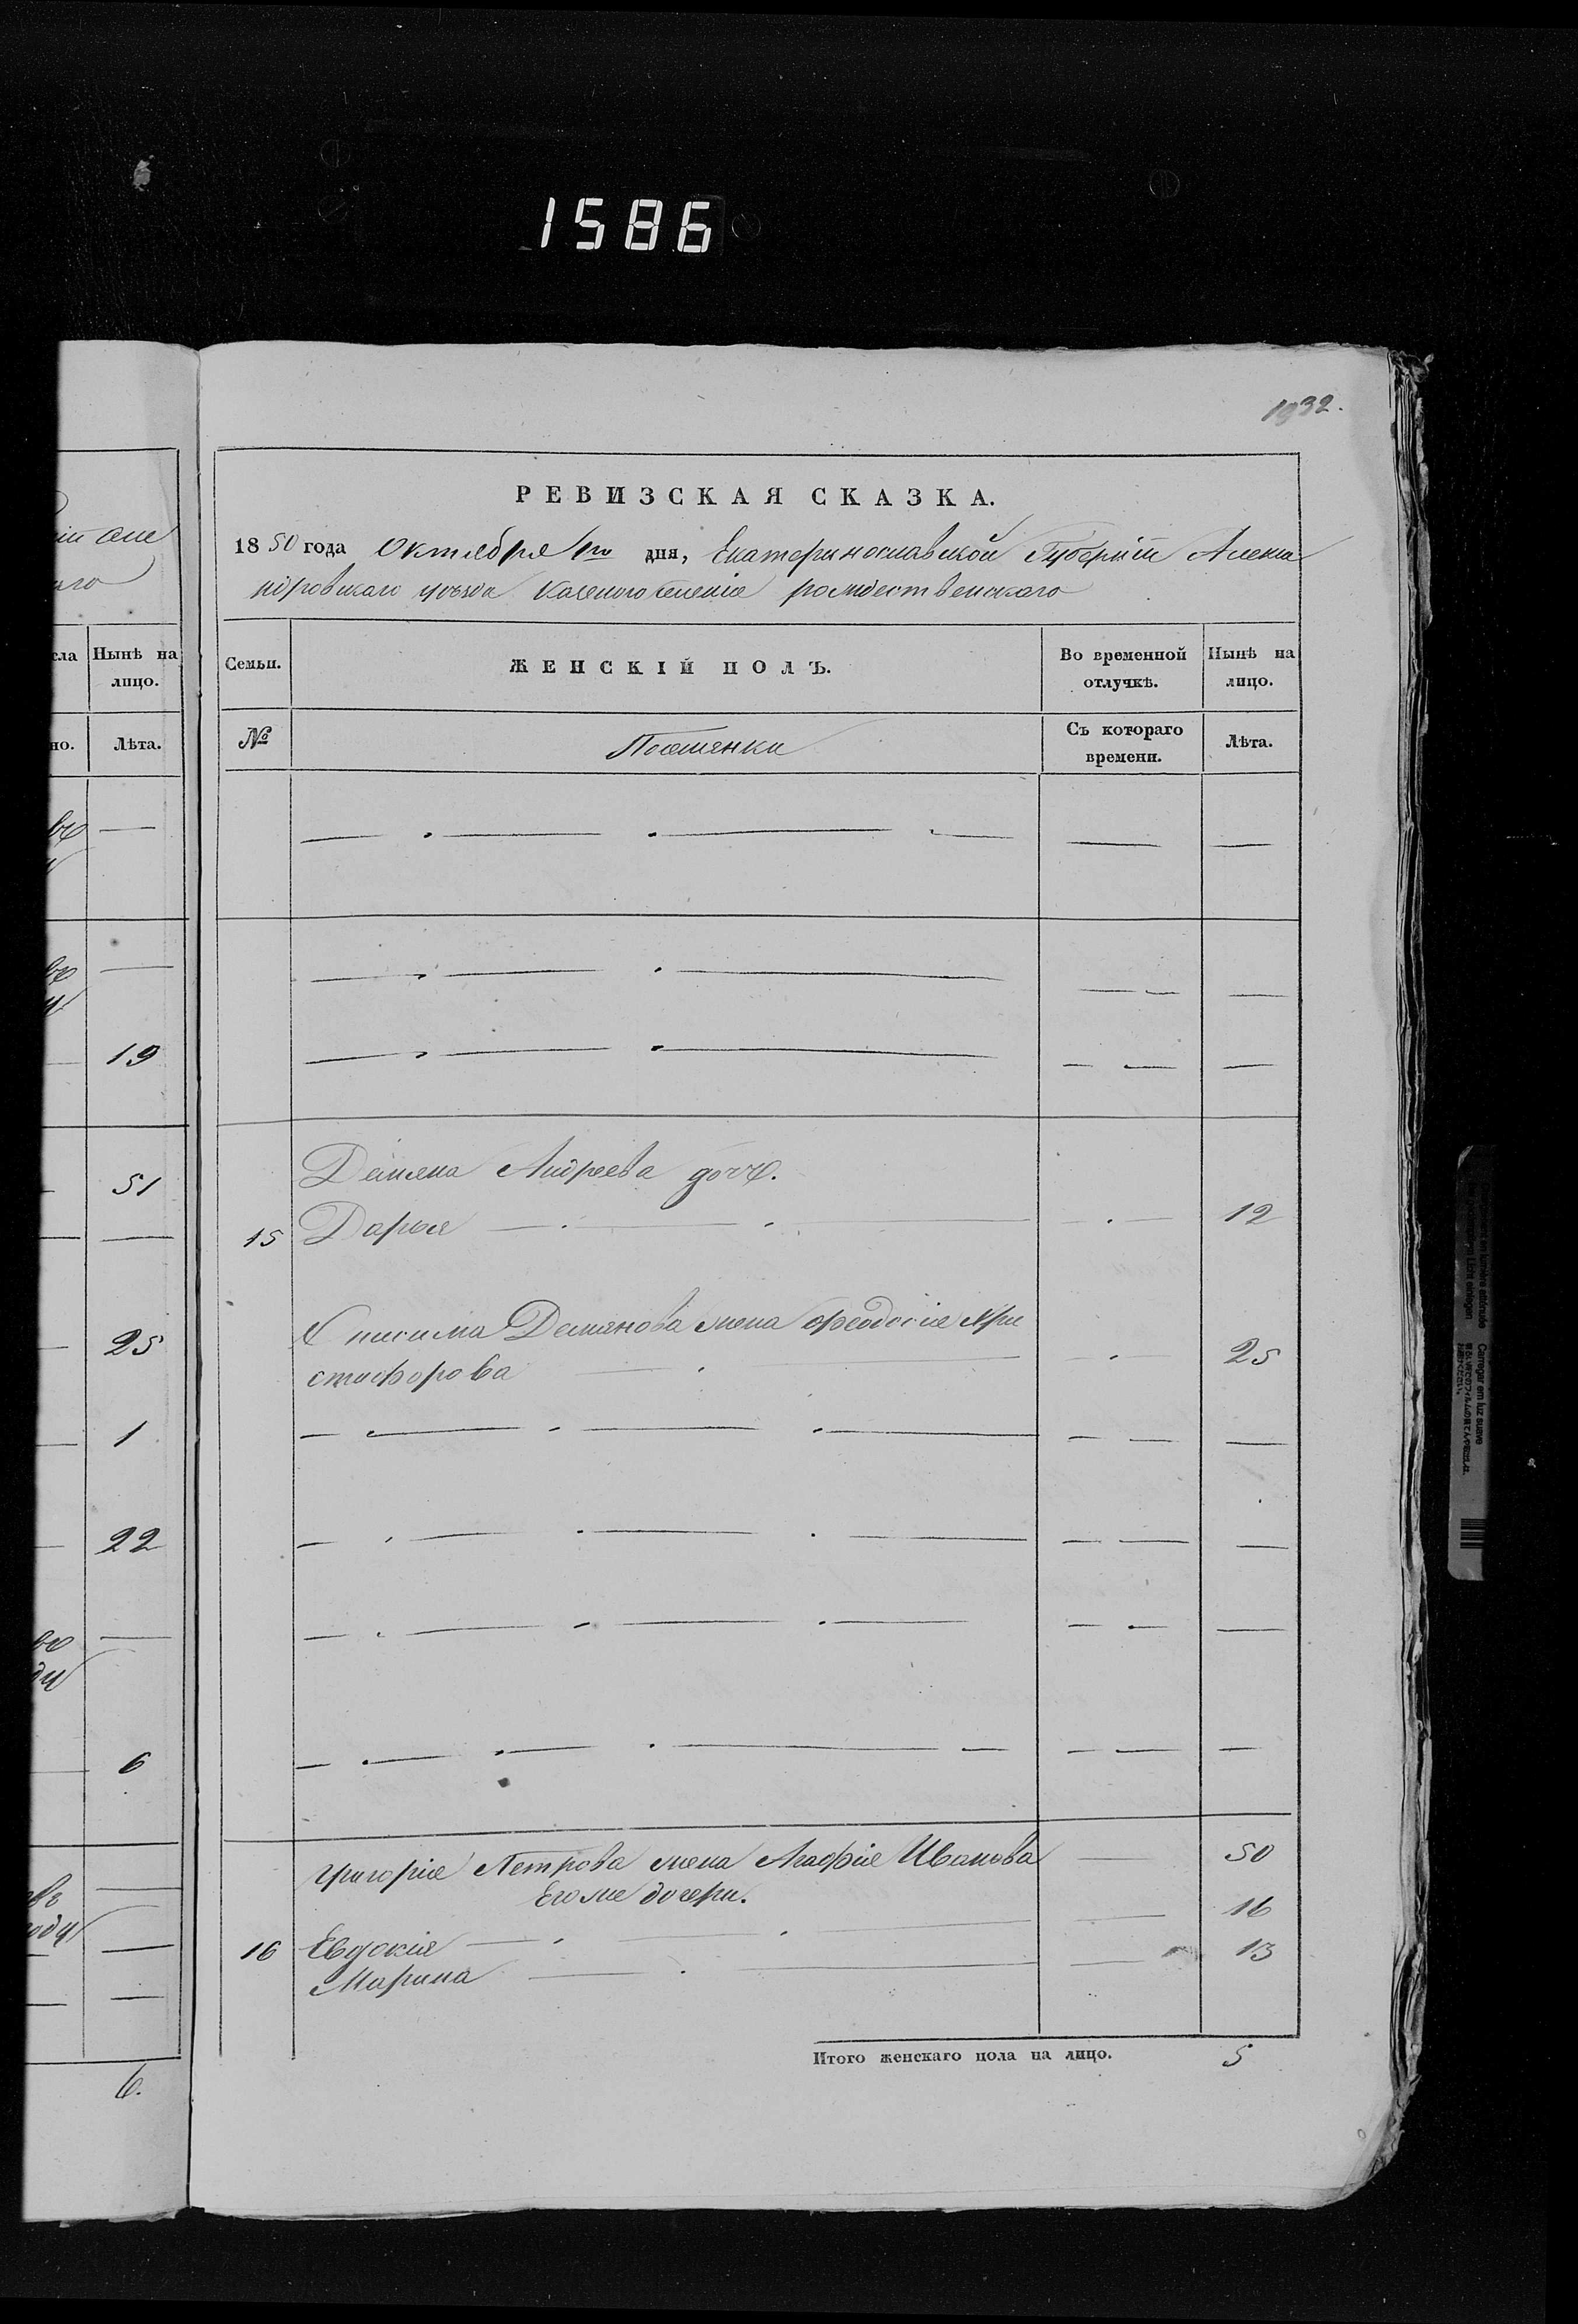 1586
1932.
РЕВИЗСКАЯ СКАЗКА.
1850 года Октября 1го дня, Екатеринославской Губернiи Алексан
дровскаго уѣзда казеного селенiя рождественскаго
Семьи.
ЖЕНСКIЙ ПОЛЪ.
Во временной отлучкѣ.
Нынѣ на лицо.
№
Съ котораго времени.
Лѣта.
Демяна Андреева дочь.
15 Дарья 12
Онисима Демянова жена Феодосiя Хри
стифорова 25
Григорiя Петрова жена Агафiя Иванова 50
Его же дочери.
16 Евдокiя 16
Марина 13
Итого женскаго пола на лицо. 5
Нынѣ на
лицо.
Лѣта.
19
51
25
1
22
6
6.